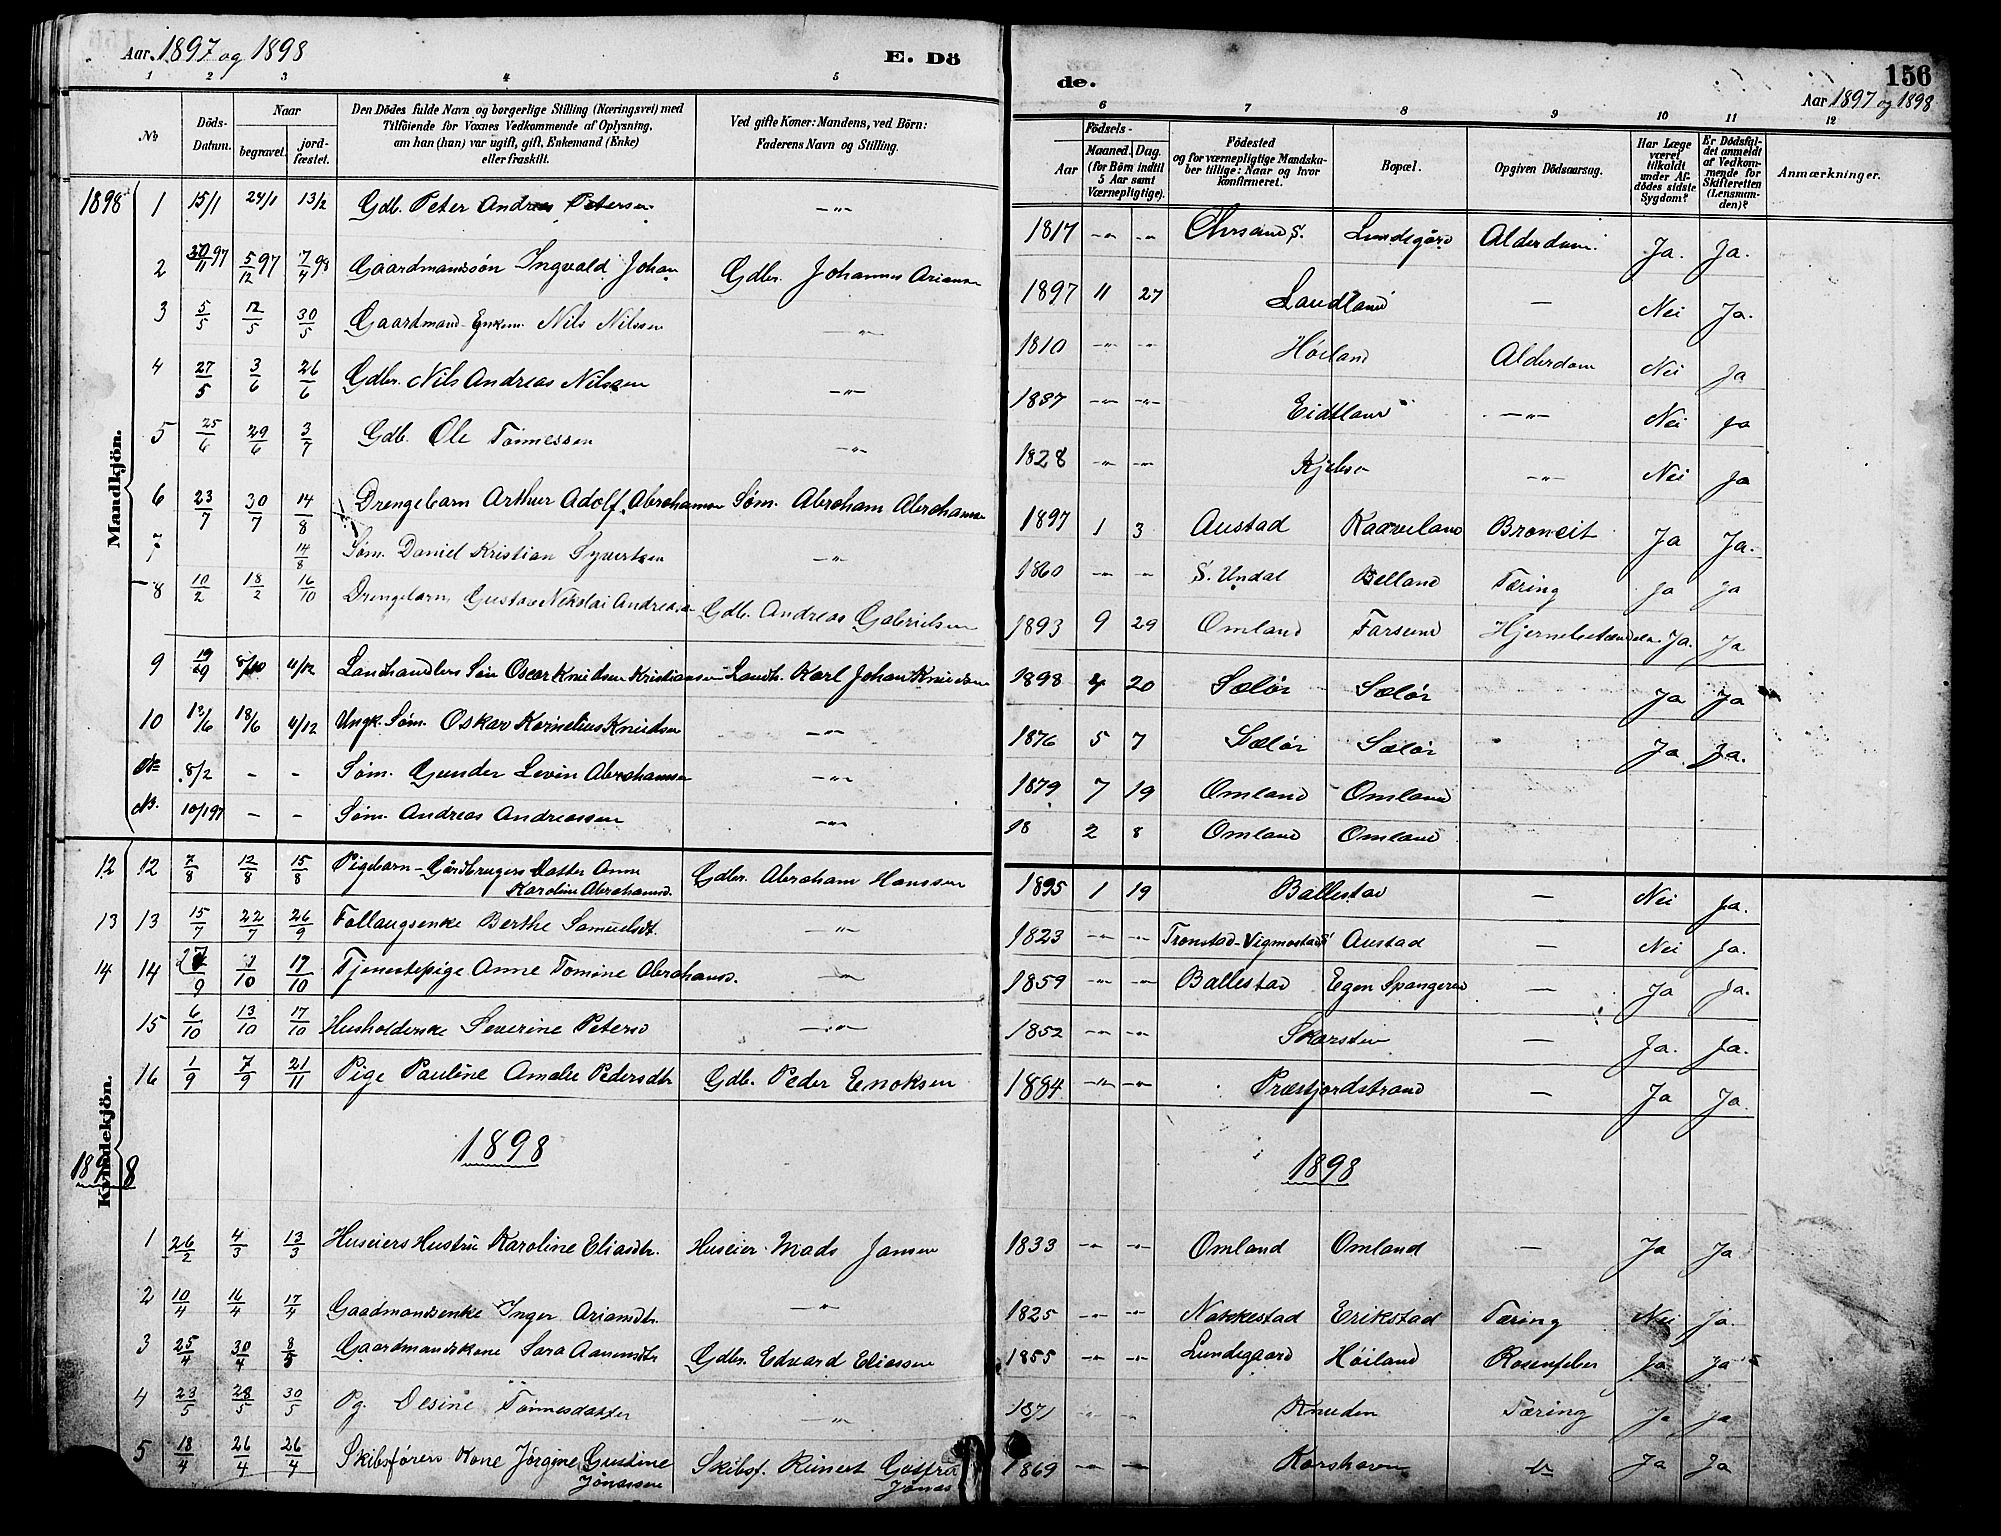 Aar 1897 og 1898
E. Dö
de.
156
Aar 1897 og 1898
1 2 3 4 5 6 7 8 9 10 11 12
No
Döds-Datum.
Naar
begravet.
jord-fæstet.
Den Dödes fulde Navn og borgerlige Stilling (Næringsvei) med
Tilföiende for Voxnes Vedkommende af Oplysning,
om han (hun) var ugift, gift, Enkemand (Enke)
eller fraskilt.
Ved gifte Koner: Mandens, ved Börn:
Faderens Navn og Stilling.
Födsels-
Aar
Maaned. Dag.
(for Börn indtil
5 Aar samt
Værnepligtige).
Födested
og for værnepligtige Mandska-
ber tillige: Naar og hvor
konfirmeret.
Bopæl.
Opgiven Dödsaarsag.
Har Læge
været
tilkaldt
under Af-
dödes sidste
Sygdom?
Er Dödsfal-
det anmeldt
af Vedkom-
mende for
Skifteretten
(Lensman-
den)?
Anmærkninger.
Mandkjön.
1898 1 15/1 24/1 13/2 Gdb. Peter Andreas Petersen -"- 1817 -"- -"- Chrsand S. Lundegård Alderdom. Ja. Ja.
2 30/11 97 5/12 97 7/4 98 Gaardmandssön Ingvald Johan Gdbr. Johannes Ariansen 1897 11 27 Laudland — Nei Ja.
3 5/5 12/5 30/5 Gaardmand Enkem. Nils Nilssen -"- 1810 -"- -"- Höiland Alderdom Nei Ja
4 27/5 3/6 26/6 Gdbr. Nils Andreas Nilsen -"- 1837 -"- -"- Eidsland -"- Nei Ja
5 25/6 29/6 3/7 Gdb. Ole Tönnessen -"- 1828 -"- -"- -"- Nei Ja
6 23/7 30/7 14/8 Drengebarn Arthur Adolf Abrahamsen Søm. Abraham Abrahamsen 1897 1 3 Austad Kaaveland Broncit Ja Ja.
7 14/8 Søm. Daniel Kristian Syvertsen -"- 1860 -"- -"- S. Undal Belland Tæring Ja Ja
8 10/2 18/2 16/10 Drengebarn Gustav Nikolai Andreasen Gdb. Andreas Gabrielsen 1893 9 29 Omland Farsund Ja. Ja
9 19/9 8/10 4/12 Landhandlers Sön Oscar Knudsen Kristiansen Landh. Karl Johan Knudsen 1898 4 20 Sælör Sælör Ja Ja
10 12/6 18/6 4/12 Ungk. Søm. Oskar Kornelius Knudsen -"- 1876 5 7 Sælör Sælör Ja Ja.
8/2 - - Søm. Gunder Levin Abrahamsen -"- 1879 7 19 Omland Omland
NB. 10/1 97 - - Søm. Andreas Andreassen -"- 18 2 8 Omland Omland
Kvindekjön.
12 12 7/8 12/8 15/8 Pigebarn - Gårdbrugers Datter Anne
Karoline Abrahamsd. Gdbr. Abraham Hanssen 1895 1 19 Ballestad — Nei Ja.
13 13 15/7 22/7 26/9 Follaugsenke Berthe Samuelsdt. -"- 1823 -"- -"- Tronstad-Vigmostad Austad — Nei Ja.
14 14 27/9 1/10 17/10 Tjenestepige Anne Tomine Abrahamsd. -"- 1859 -"- -"- Ballestad Egen Spangereid — Ja Ja.
15 6/10 13/10 17/10 Husholderske Severine Petersd -"- 1852 -"- -"- Skarstein — Ja. Ja.
16 1/9 7/9 21/11 Pige Pauline Amalie Pedersdtr Gdb. Peder Enoksen 1884 -"- -"- Præstfjordstrand — Ja Ja.
1898
1898
1898
1 26/2 4/3 13/3 Huseiers Hustru Karoline Eliasdtr. Huseier Mads Jansen 1833 -"- -"- Omland Omland — Ja Ja
2 10/4 16/4 17/4 Gaadmandsenke Inger Ariansdtr. -"- 1825 -"- -"- Nakkestad Erikstad Tæring Nei Ja.
3 25/4 30/4 8/5 Gaardmandskone Sara Aanensdtr Gdbr. Edvard Eliassen 1855 -"- -"- Lundegaard Höiland Rosenfeber Ja Ja
4 23/5 28/5 30/5 Pg. Olesine Tönnesdatter -"- 1871 -"- -"- Knuden Tæring Ja Ja
5 18/4 26/4 26/4 Skibsförers Kone Jörgine Gustine
Jonassen Skibsf. Reinert
Jonas 1869 -"- -"- Korshavn Ja Ja